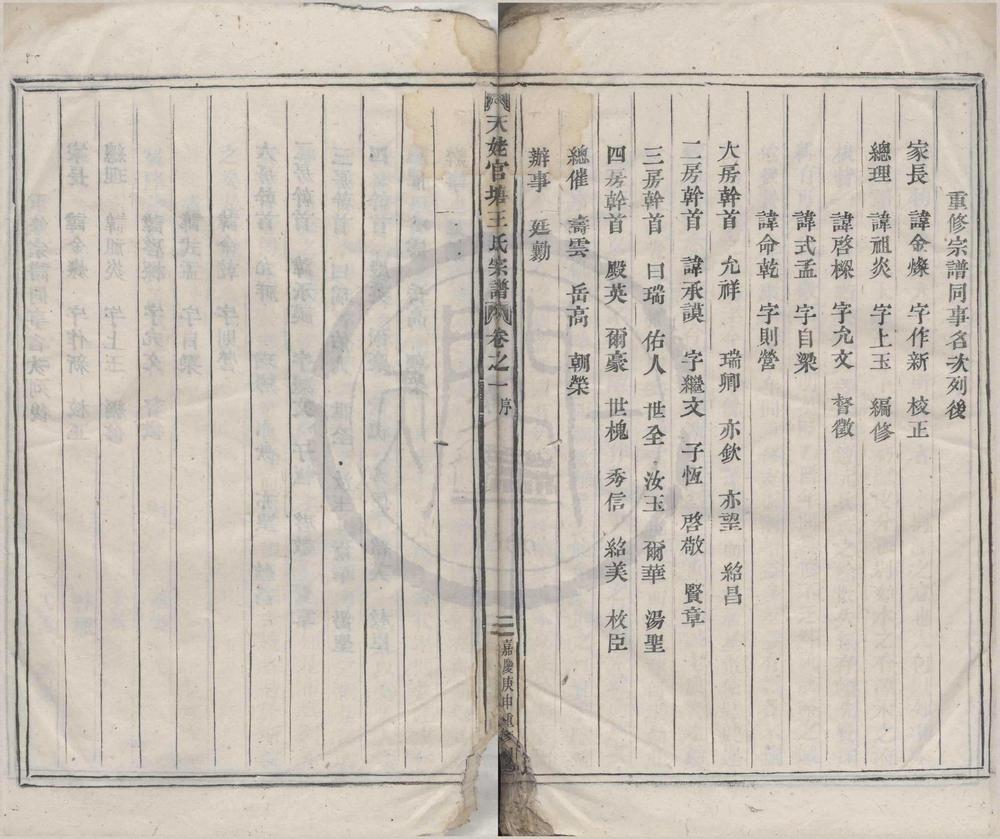 重修宗譜同事名次列後
家長 諱金燦 字作新 校正
總理 諱祖炎 字上玉 編修
諱啓樑 字允文 督徵
諱式孟 字自梁
諱命乾 字則營
大房幹首 允祥 瑞卿 亦欽 亦望 紹昌
二房幹首 諱承謨 字繼文 子恆 啓敬 賢章
三房幹首 曰瑞 佑人 世全 汝玉 爾華 湯聖
四房幹首 殿英 爾豪 世槐 秀信 紹美 枚臣
總催 壽雲 岳高 朝榮
辦事 廷勷
天姥官塘王氏宗譜 卷之一 序 二 嘉慶庚申重